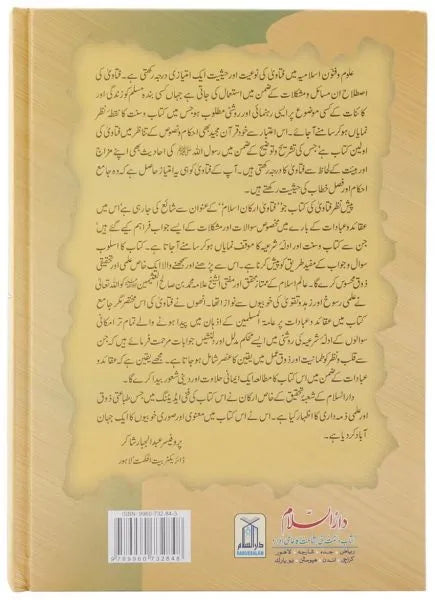 علوم و فنون اسلامیہ میں فتاویٰ کی نوعیت اور حیثیت ایک امتیازی درجہ رکھتی ہے۔ فتاویٰ کی
اصطلاح ان مسائل و مشکلات کے ضمن میں استعمال کی جاتی ہے جہاں کسی بندہ مسلم کو زندگی اور
کائنات کے کسی موضوع پر ایسی رہنمائی اور روشنی مطلوب ہو جس میں کتاب و سنت کا نقطۂ نظر
نمایاں ہو کر سامنے آجائے۔ اس اعتبار سے خود قرآن مجید بھی احکام و نصوص کے تناظر میں فتاویٰ کی
اولین کتاب ہے جس کی تشریح و توضیح کے ضمن میں رسول اللہ ﷺ کی احادیث بھی اپنے مزاج
اور ہیئت کے لحاظ سے فتاویٰ کا درجہ رکھتی ہیں۔ آپ کے فتاویٰ کو ہی یہ امتیاز حاصل ہے کہ وہ جامع
احکام اور فصل خطاب کی حیثیت رکھتے ہیں۔
پیش نظر فتاویٰ کی کتاب جو "فتاویٰ ارکان اسلام" کے عنوان سے شائع کی جا رہی ہے اس میں
عقائد و عبادات کے بارے میں مخصوص سوالات اور مشکلات کے ایسے جواب فراہم کیے گئے ہیں
جن سے کتاب و سنت اور ادلہ شرعیہ کا موقف نمایاں ہو کر سامنے آجاتا ہے۔ کتاب کا اسلوب
سوال و جواب کے مفید طریق کو پیش کرتا ہے۔ اس سے پڑھنے اور سمجھنے والا ایک خاص علمی اور تحقیقی
ذوق محسوس کرے گا۔ عالم اسلام کے ممتاز محقق اور مفتی الشیخ علامہ محمد بن صالح العثیمین کو اللہ تعالیٰ
نے علمی رسوخ اور زہد و تقویٰ کی خوبیوں سے نوازا تھا۔ انھوں نے فتاویٰ کی اس مختصر مگر جامع
کتاب میں عقائد و عبادات پر عامۃ المسلمین کے اذہان میں پیدا ہونے والے تمام تر امکانی
سوالوں کے ادلہ شرعیہ کی روشنی میں ایسے محکم مدلل اور دلنشیں جوابات مرحمت فرمائے ہیں کہ جن
سے قلب و نظر کو طمانیت اور ذوق عمل میں یقین کا عنصر شامل ہو جاتا ہے۔ مجھے یقین ہے کہ عقائد و
عبادات کے ضمن میں اس کتاب کا مطالعہ ایک ایمانی حلاوت اور دینی شعور پیدا کرے گا۔
دارالسلام کے شعبۂ تحقیق کے خاص ارکان نے اس کتاب کی فنی ایڈیٹنگ میں جس طباعتی ذوق
اور علمی ذمہ داری کا اظہار کیا ہے۔ اس نے اس کتاب میں معنوی اور صوری خوبیوں کا ایک جہان
آباد کر دیا ہے۔
پروفیسر عبدالجبار شاکر
ڈائریکٹر بیت الحکمت لاہور
ISBN: 9960-732-84-5
9 789960 732848
دارالسلام
DARUSSALAM
دارالسلام
کتاب و سنت کی اشاعت کا عالمی ادارہ
ریاض جدہ شارجہ لاہور
کراچی لندن ہیوسٹن نیویارک